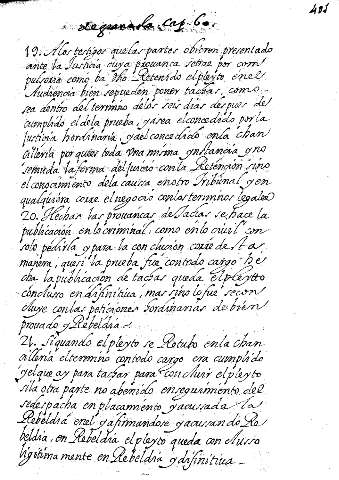 de granada Cap. 6o.
481
19. A los testigos que las partes obieren presentado
ante la Justicia cuya provança se trae por com
pulsoria como ba dho Retenido el pleyto, en el
Audiencia bien se pueden poner tachas, como
sea dentro del termino de los seis dias despues de
cumplido el de la prueba, y a sea el concedido por la
Justicia hordinaria, y a el concedido en la chan
cilleria porque es toda una misma ynstancia y no
se muda la forma del juicio con la Retencion sino
el conocimiento de la causa en otro tribunal, y en
qualquiera corre el negocio con los terminos legales
20. Hechas las provanças de tachas se hace la
publicacion en lo criminal. como en lo civil con
solo pedirla y para la conclucion corre de st as
manera, que si la prueba fue con todo cargo he
cha la publicacion de tachas queda el Pleytto
concluso en difinitiva, mas sino lo fue se con
cluye con las peticiones hordinarias de bien
provado y Rebeldia
21. Si quando el pleyto se Retubo en la chan
cilleria el termino con todo cargo era cumplido
y el que ay para tachar para concluir el pleyto
si la otra parte no a benido en seguimiento del
se despacha en plaçamiento y acusada la
Rebeldia en el y afirmandose y acusando Re
beldia, en Rebeldia el pleyto queda conclusso
ligitima mente en Rebeldia y difinitiva